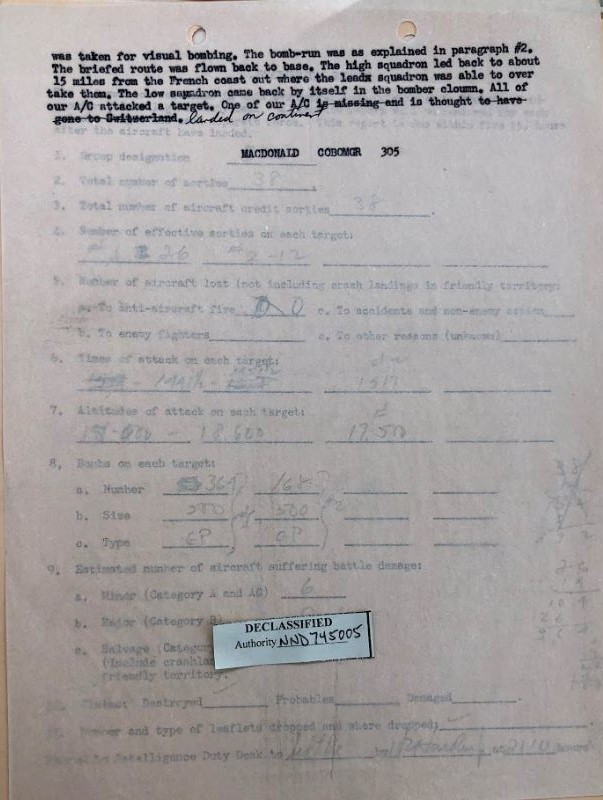 was taken for visual bombing. The bomb-run was as explained in paragraph #2.
The briefed route was flown back to base. The high squadron led back to about
15 miles from the French coast out where the leadx squadron was able to over
take them. The low squadron came back by itself in the bomber cloumn. All of
our A/C attacked a target. One of our A/C is missing and is thought to have
gone to Switzerland. landed on continent
after the aircraft have landed.
MACDONALD COBOMGR 305
1. Group designation
2. Total number of sorties 38
3. Total number of aircraft credit sorties 38
4. Number of effective sorties on each target:
#1 26 #2 -12
5. Number of aircraft lost (not including crash landings in friendly territory:
a. To anti-aircraft fire 0 c. To accidents and non-enemy action
b. To enemy fighters e. To other reasons (unknown)
6. Times of attack on each target:
1517
7. Altitudes of attack on each target:
- 18,600 17,500
8. Bombs on each target:
a. Number 364 168
b. Size 500 500 #2
c. Type GP GP
9. Estimated number of aircraft suffering battle damage:
a. Minor (Category A and AC) 6
b. Major (Category B)
c. Salvage (Category
(Include crashlan
friendly territory.
DECLASSIFIED
Authority NND745005
10. Claims: Destroyed Probables Damaged
11. Number and type of leaflets dropped and where dropped:
Intelligence Duty Desk to by at 2110 hours